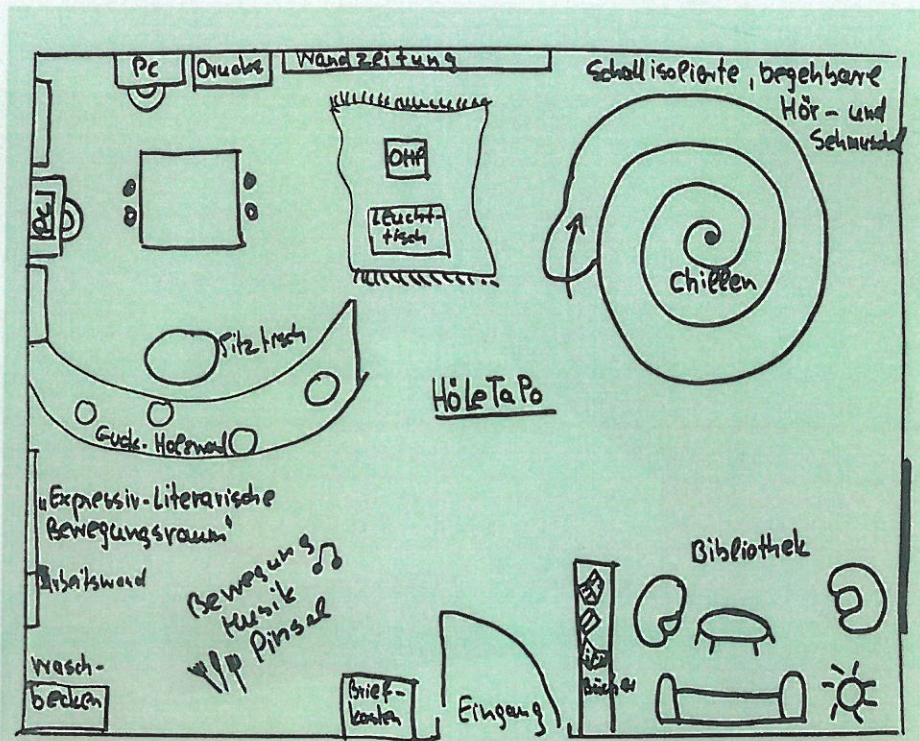 PC
Drucker
Wandzeitung
Schallisolierte, begehbare
Hör- und
OHP
Leucht-
tisch
PC
Chillen
Sitztisch
HöLeTaPo
Guck-Holzwand
„Expressiv-Literarische
Bewegungsraum“
Arbeitswand
Bewegung
Musik
Pinsel
Bibliothek
Wasch-
becken
Brief-
kasten
Eingang
Bücher